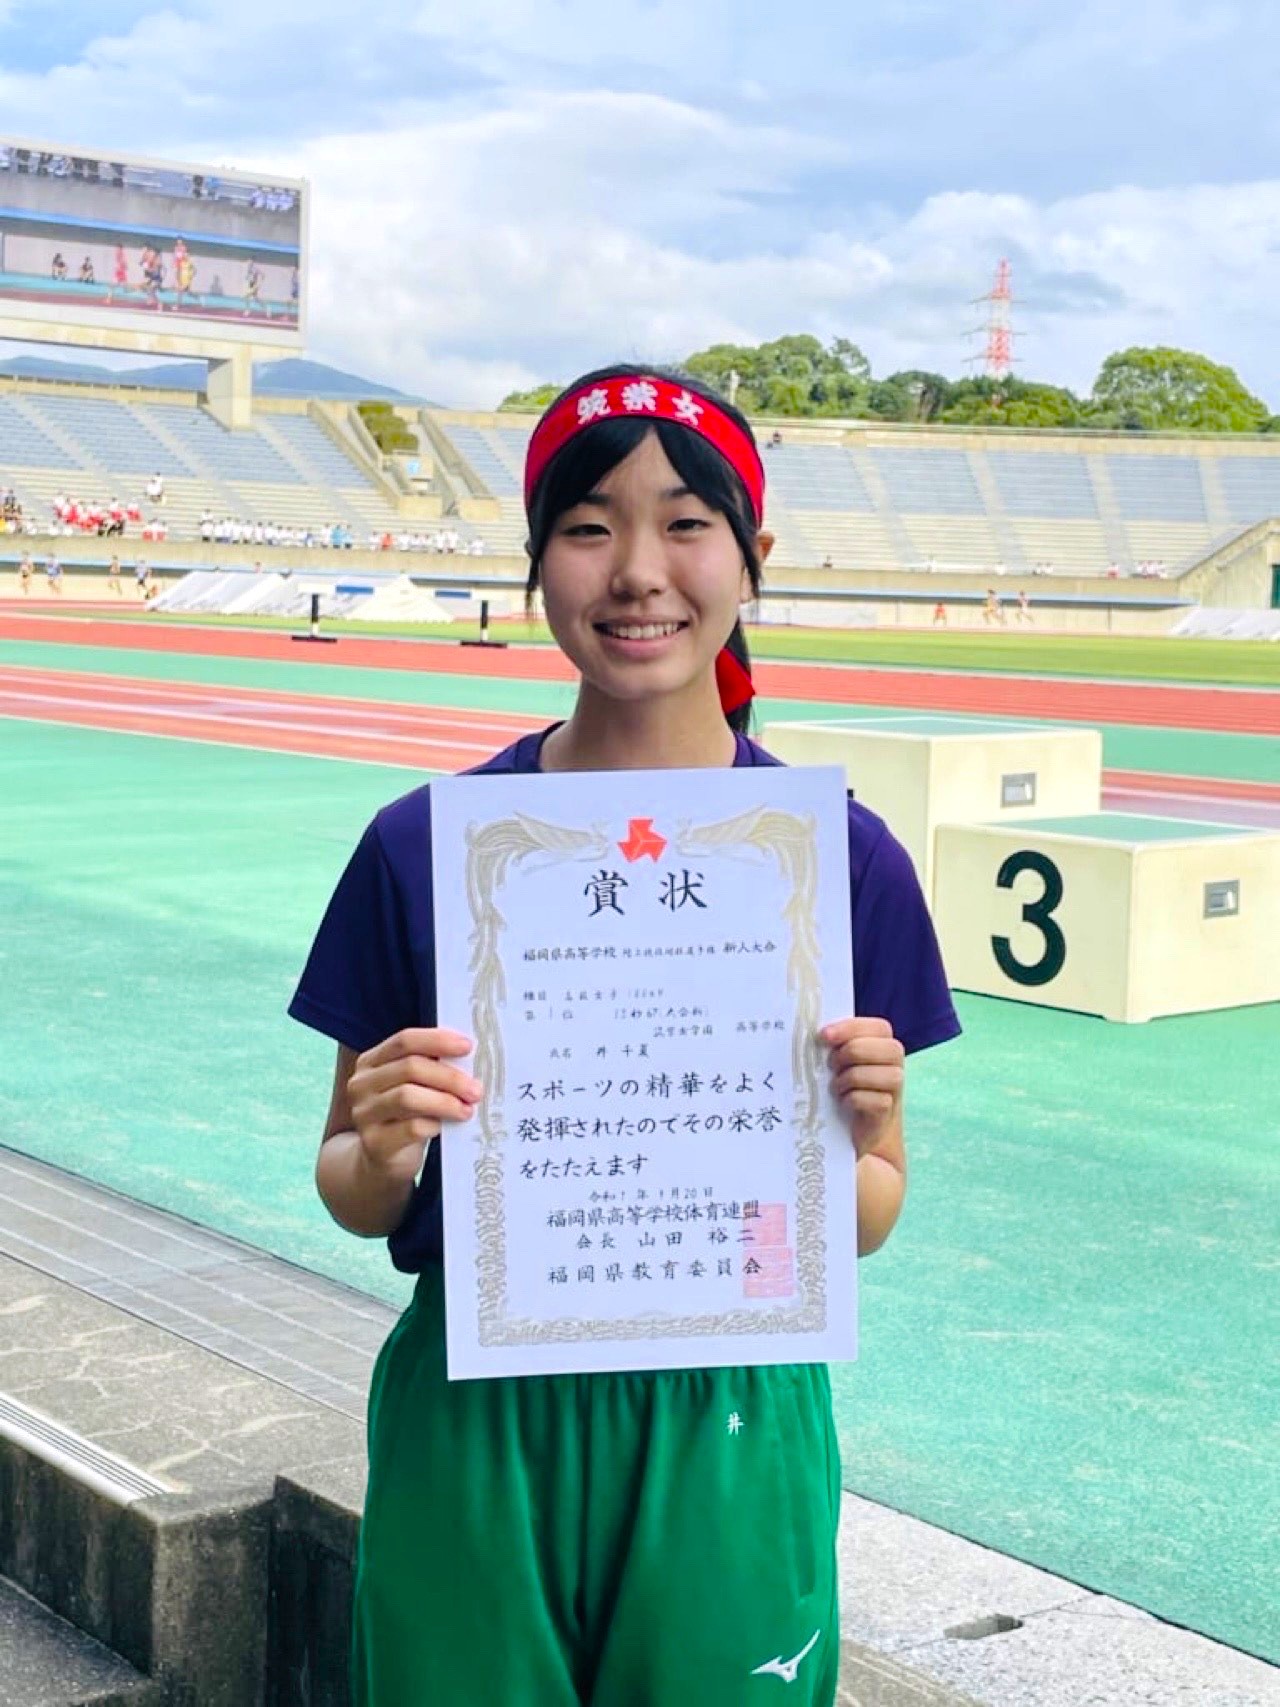 筑紫女
賞状
福岡県高等学校 陸上競技対校選手権 新人大会
種目 高校女子100mH
第1位 13秒67(大会新)
筑紫女学園 高等学校
氏名 井 千夏
スポーツの精華をよく
発揮されたのでその栄誉
をたたえます
令和7年9月20日
福岡県高等学校体育連盟
会長 山田 裕二
福岡県教育委員会
3
井